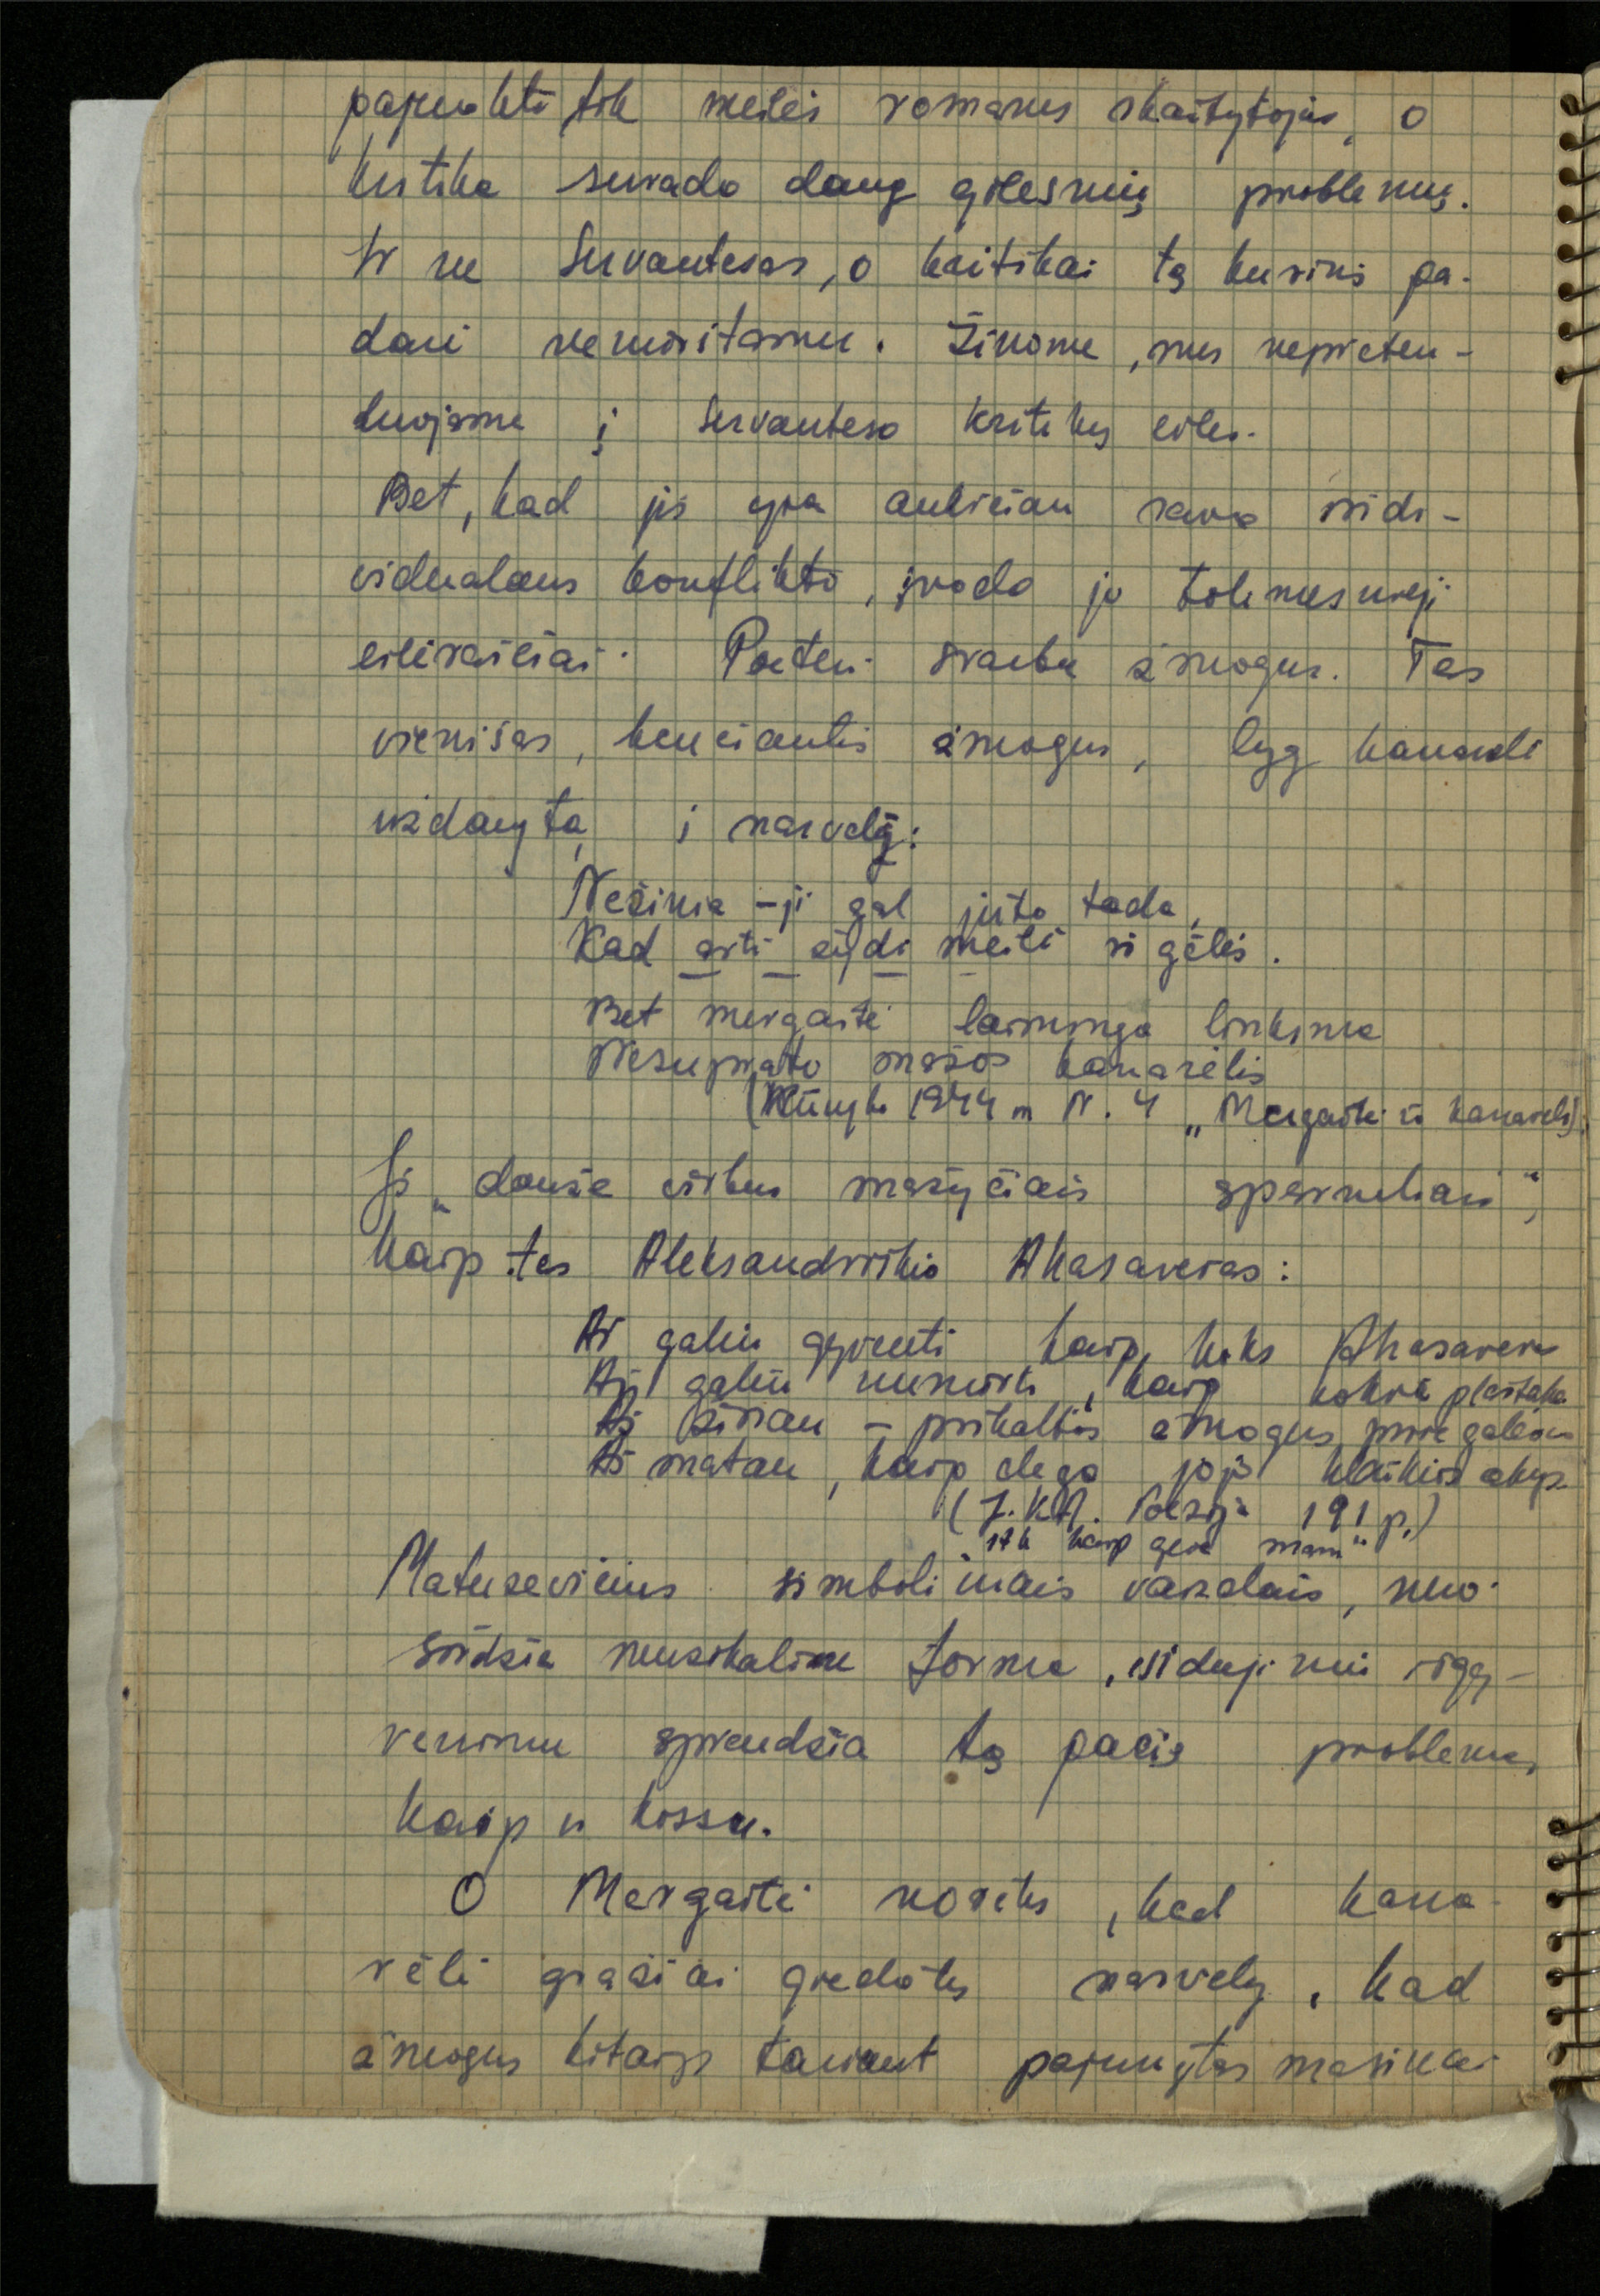 pajuokti tik meilės romanus skaitytojus, o
kritika surado daug gilesnių problemų.
Ir ne Servantesas, o kritikai tą kurinį pa-
darė nemirštamu. Žinome, mes nepreten-
duojame į Servanteso kritikų eiles.
Bet, kad jis yra aukščiau savo indi-
vidualaus konflikto, įrodo jo tolimesnieji
eilėraščiai. Poetui svarbu žmogus. Tas
vienišas, kenčiantis žmogus, lyg kanarėlė
uždaryta į narvelį:
Nežinia – ji gal jūto tada,
Kad arti žydi meilė ir gėlės.
Bet mergaitė laiminga linksma
Nesuprato mažos kanarėlės
(Kūryba 1944 m N. 4 „Mergaitė ir kanarėlė)
Ji „daužė virbus mažyčiais sparneliais“,
kaip tas Aleksandriškio Ahasveras:
Aš galiu gyventi kaip koks Ahasveras
Aš galiu numirti, kaip kokia plaštakė
Aš žinau – prikaltas žmogus prie galeros
Aš matau, kaip dega jojo klaikios akys.
(J.K.A. Poezija 191 p.)
kaip gera man“
Matusevičius simboliniais vaizdais, nuo-
širdžia muzikaline forma, vidujiniu išgy-
venimu sprendžia tą pačią problemą,
kaip ir kossu.
O Mergaitė norėtų, kad kana-
rėlė gražiai giedotų narvely, kad
žmogus kitaip tariant pajungtas mašinai